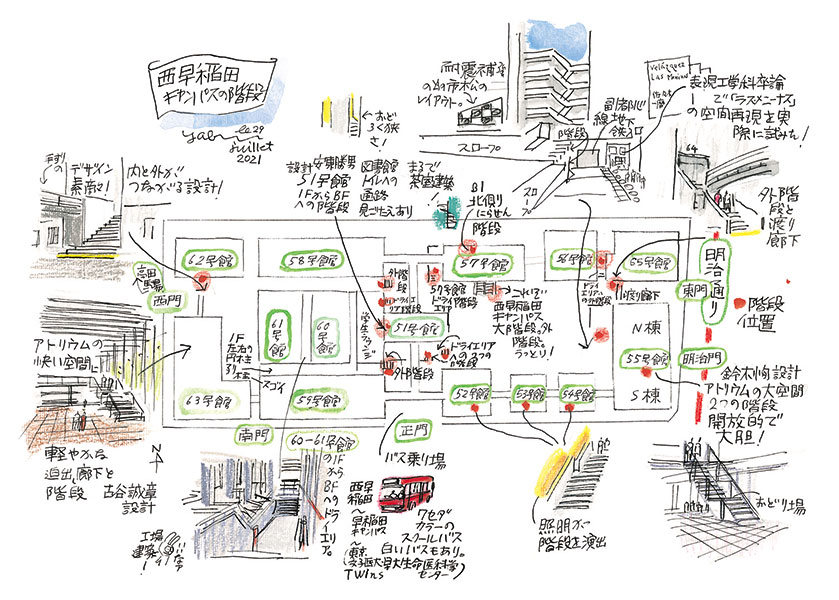 西早稲田
キャンパスの階段
29
juillet
2021
おど
ろく狭
さ!
耐震補強
の為市松の
レイアウト。
スロープ
副都心
線地下
鉄入口
階段
スロープ
Velázquez
Las Meninas
表現工学科卒論
で「ラスメニーナス」
の空間再現を実
際に試みた!
64
外階段
と渡り
廊下
手すりの
デザイン
素敵!
内と外が
つながる設計!
設計 安東勝男
51号館
1FからBF
への階段
図書館
トイレへの
通路
見ごたえあり
まるで
茶室建築!
B1
北側り
にらせん
階段
62号館
58号館
57号館
56号館
65号館
高田
馬場
西門
外階
段
ドライエリア階段
57号館
ドライ階段
エリア
これぞ
西早稲田
キャンパス
大階段。外
階段。
うっとり!
ドライ
エリアへ
の外階段
渡り廊下
明治通り
東門
階段
位置
61号館
60号館
学生ラウンジ
51号館
外B階段
ドライエリア
への2つの
階段
N棟
55号館
S棟
明治門
アトリウムの
快い空間に
1F
左右の
円柱
スゴイ
63号館
59号館
52号館
53号館
54号館
鈴木恂設計
アトリウムの大空間
2つの階段
開放的で
大胆!
南門
60-61号館
の1Fから
BFへの
ドライエリア。
正門
バス乗り場
軽やかな
廊下と
階段 古谷誠章
設計
N
工場
建築!
西早稲田
〜
早稲田
キャンパス
〜
(東京女子医大早大生命医科学センター)
TWIns
ワセダ
カラーの
スクールバス
白いバスもあり。
照明が
階段を演出
おどり場